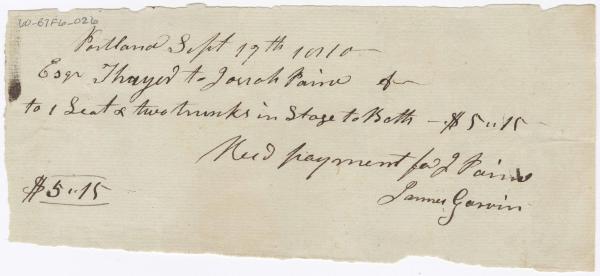 60-67F6-026
Portland Sept 19th 1810
Esqr Thayer to Josiah Paine Dr
to 1 Seat & two trunks in Stage to Bath - $5"15
Recd payment for J Paine
James Garvin
$5"15